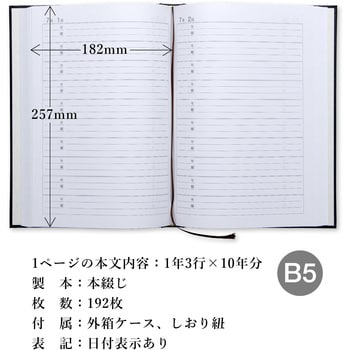 7月 1日
7月 2日
182mm
257mm
1ページの本文内容：1年3行×10年分
製　本：本綴じ
枚　数：192枚
付　属：外箱ケース、しおり紐
表　記：日付表示あり
B5